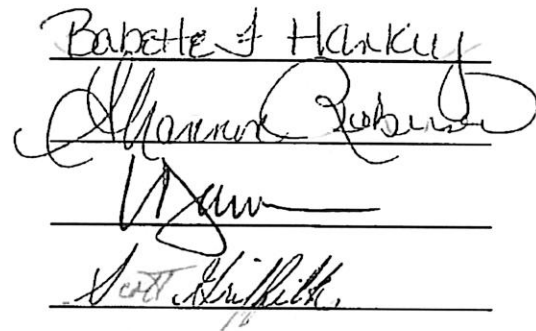 Babette J Hankey
Shannon Robinson
Scott Griffith